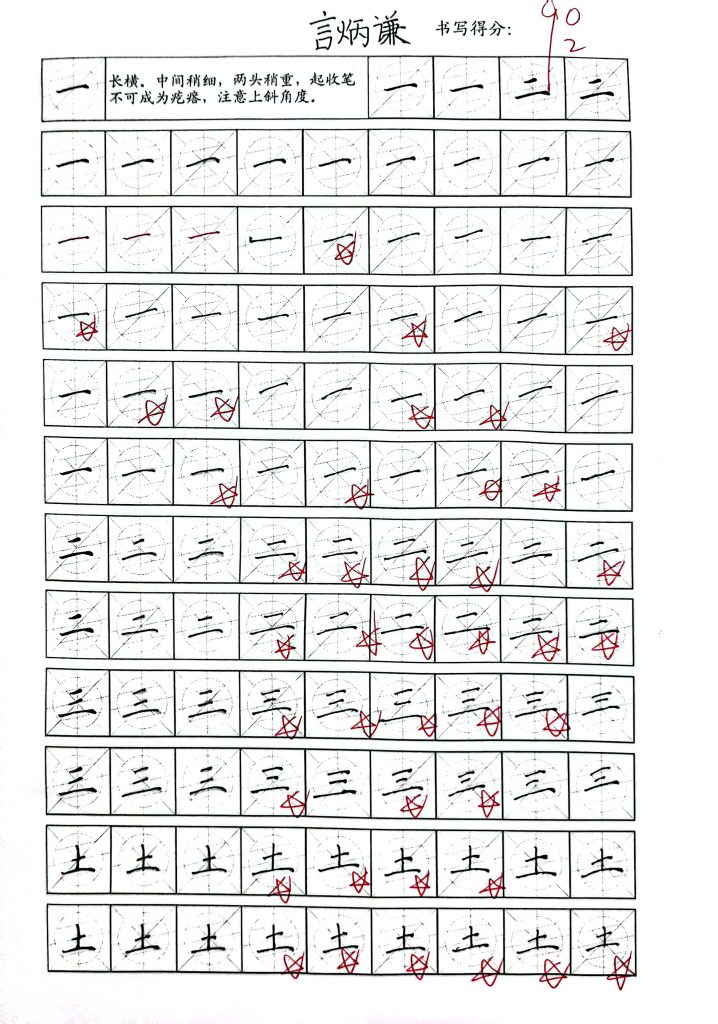 言炳谦 书写得分： 90
2
一 长横。中间稍细，两头稍重，起收笔 一 一 二 二
不可成为疙瘩，注意上斜角度。
一 一 一 一 一 一 一 一 一
一 一 一 一 一 一 一 一 一
一 一 一 一 一 一 一 一 一
一 一 一 一 一 一 一 一 一
一 一 一 一 一 一 一 一 一
二 二 二 二 二 二 二 二 二
二 二 二 二 二 二 二 二 二
三 三 三 三 三 三 三 三 三
三 三 三 三 三 三 三 三 三
土 土 土 土 土 土 土 土 土
土 土 土 土 土 土 土 土 土